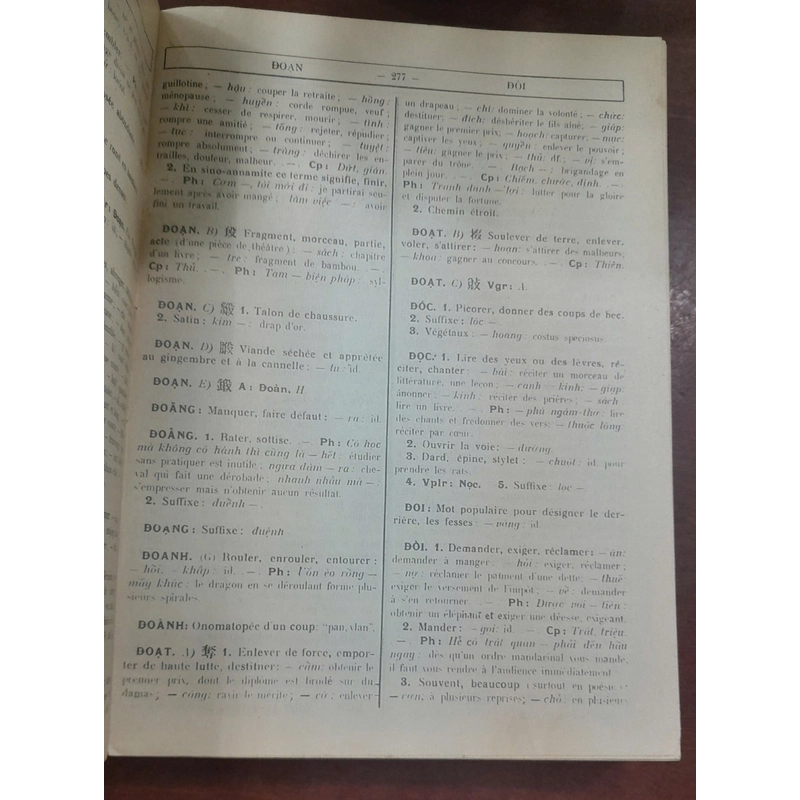 ĐOAN
— 277 —
ĐÒI
guillotine ; — hậu : couper la retraite ; — hồng :
ménopause ; — huyền : corde rompue, veuf ;
— khí : cesser de respirer, mourir ; — tình :
rompre une amitié ; — tống : rejeter, répudier ;
— tục : interrompre ou continuer ; — tuyệt :
rompre absolument ; — tràng : déchirer les en-
trailles, douleur, malheur. — . Cp : Dứt, gián.
2. En sino-annamite ce terme signifie, finir.
— . Ph : Cơm —, tôi mới đi : je partirai seu-
lement après avoir mangé ; làm việc — : avoir
fini un travail.
ĐOẠN. B) Fragment, morceau, partie,
acte (d'une pièce de théâtre) ; — sách : chapitre
d'un livre ; — tre : fragment de bambou. — .
Cp : Thủ. — . Ph : Tam — biện pháp : syl-
logisme.
ĐOẠN. C) 1. Talon de chaussure.
2. Satin : kim — : drap d'or.
ĐOẠN. D) Viande séchée et apprêtée
au gingembre et à la cannelle : — tu : id.
ĐOẠN. E) 鍛 A : Đoàn, H
ĐOẢNG : Manquer, faire défaut : — ra : id.
1. Rater, sottise. — Ph : Có học
mà không có hành thì cũng là — hết : étudier
sans pratiquer est inutile ; ngựa dâm — ra : che-
val qui fait une dérobade ; nhanh nhẩu mà — :
s'empresser mais n'obtenir aucun résultat.
2. Suffixe : duềnh —.
ĐOẠNG : Suffixe : duệnh
ĐOANH. (G) Rouler, enrouler, entourer :
— hồi, — khắp : id. — . Ph : Uốn éo rồng —
mấy khúc : le dragon en se déroulant forme plu-
sieurs spirales.
ĐOÀNH : Onomatopée d'un coup : "pan, vlan".
ĐOẠT. A) 奪 1. Enlever de force, empor-
ter de haute lutte, destituer : — cẩm : obtenir le
premier prix, dont le diplôme est brodé sur du
damas ; — công : ravir le mérite ; — cờ : enlever
un drapeau ; — chí : dominer la volonté ; — chức :
destituer ; — đích : déshériter le fils aîné, — giáp :
gagner le premier prix ; — hoạch : capturer, — mục :
captiver les yeux ; — quyền : enlever le pouvoir ;
— tiêu : gagner le prix ; — thủ : df. ; — vị : s'em-
parer du trône. — . Bạch — : brigandage en
plein jour. — . Cp : Chiếm, chước, định. — .
Ph : Tranh danh — lợi : lutter pour la gloire
et disputer la fortune.
2. Chemin étroit.
ĐOẠT. B) Soulever de terre, enlever,
voler, s'attirer : — hoạn : s'attirer des malheurs,
— khoa : gagner au concours. — . Cp : Thiên.
ĐOẠT. C) Vgr : A.
ĐÓC. 1. Picorer, donner des coups de bec.
2. Suffixe : lóc —.
3. Végétaux : — hoang : costus speciosus.
ĐỌC. 1. Lire des yeux ou des lèvres, ré-
citer, chanter : — bài : réciter un morceau de
littérature, une leçon ; — canh — kinh : — giáp
ânonner ; — kinh : réciter des prières ; — sách
lire un livre. — . Ph : — phú ngâm thơ : lire
des chants et fredonner des vers ; — thuộc lòng
réciter par cœur.
2. Ouvrir la voie : — đường.
3. Dard, épine, stylet : — chuột : id. pour
prendre les rats.
4. Vplr : Nọc. 5. Suffixe : lọc —.
ĐOI : Mot populaire pour désigner le der-
rière, les fesses : — váng : id.
ĐÒI. 1. Demander, exiger, réclamer : — ăn :
demander à manger : — hỏi : exiger, réclamer ;
— nợ : réclamer le paîment d'une dette ; — thuế :
exiger le versement de l'impôt ; — về : demander
à s'en retourner. — . Ph : Được voi — tiên :
obtenir un éléphant et exiger une déesse, exigeant.
2. Mander : — gọi : id. — . Cp : Trát, triệu.
— . Ph : Hễ có trát quan — phải đến hầu
ngay : dès qu'un ordre mandarinal vous mande,
il faut vous rendre à l'audience immédiatement.
3. Souvent, beaucoup (surtout en poésie)
— cơn, à plusieurs reprises ; — chỗ : en plusieurs